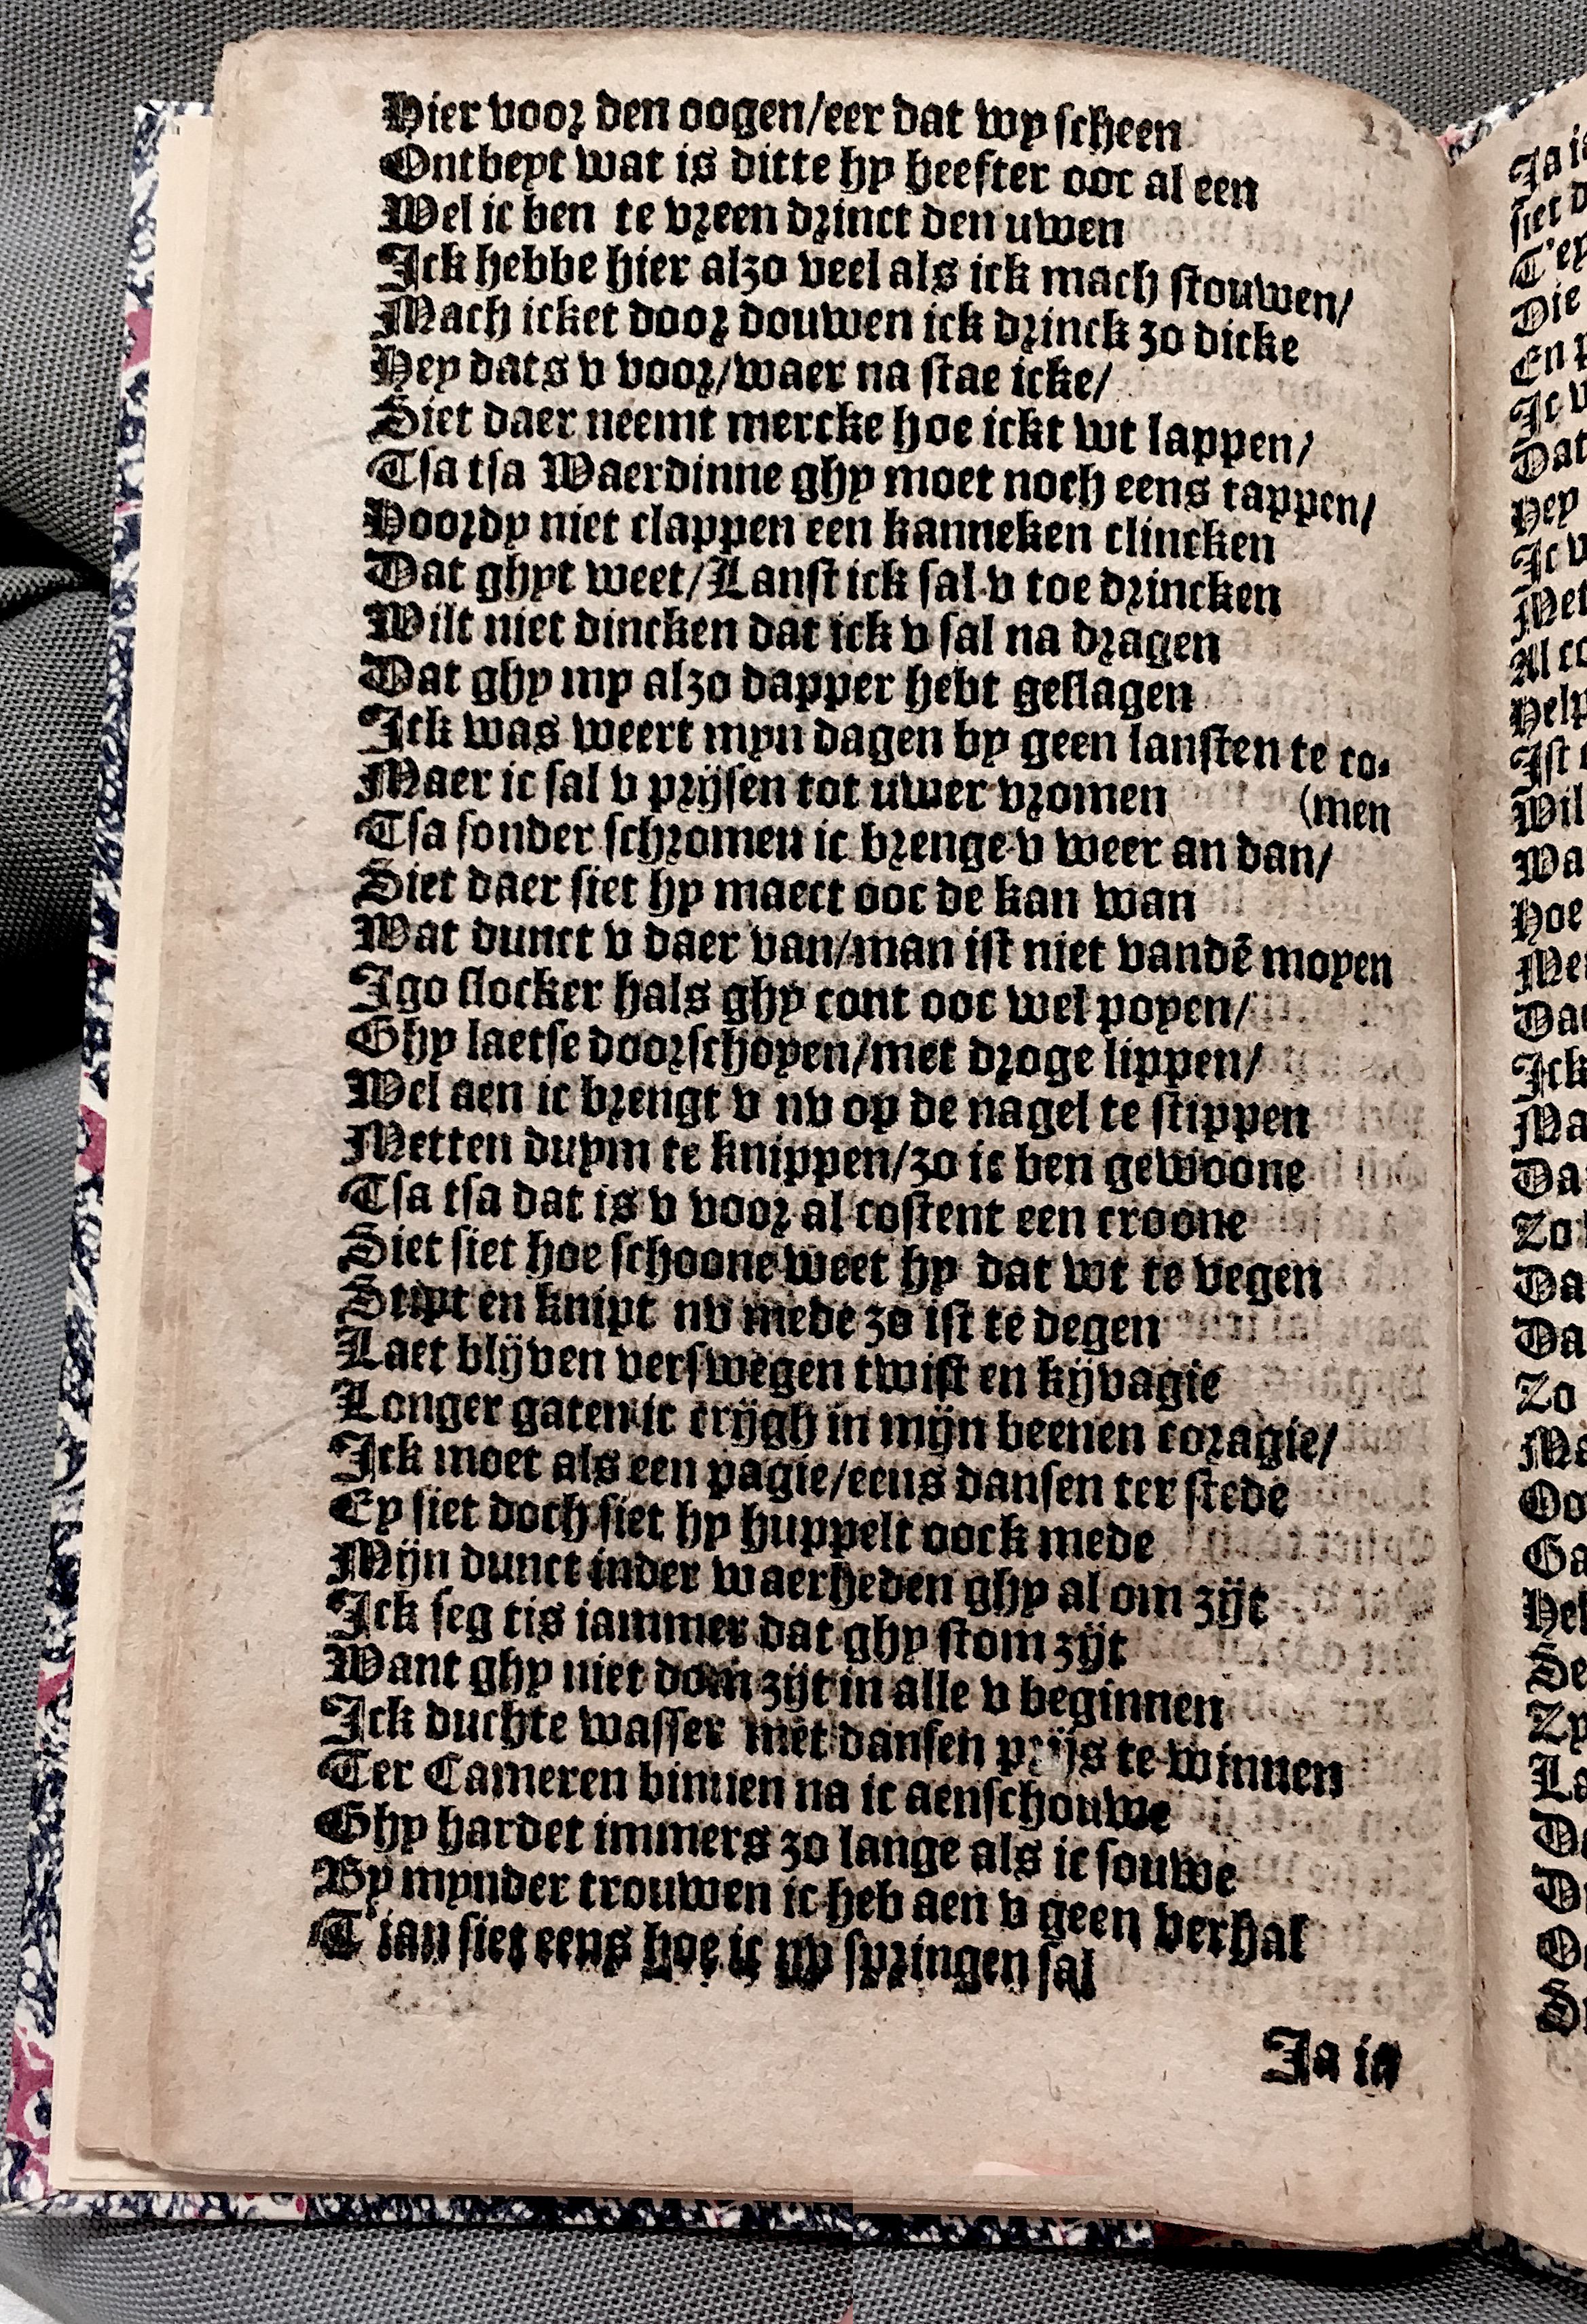 Hier voor den oogen/eer dat wy scheen
Ontbeyt wat is ditte hy heefter ooc al een
Wel ic ben te vreen drinct den uwen
Ick hebbe hier alzo veel als ick mach stouwen/
Mach icket door douwen ick drinck zo dicke
Hey dats v voor/waer na stae icke/
Siet daer neemt mercke hoe ickt wt lappen/
Tsa tsa Waerdinne ghy moet noch eens tappen/
Hoordy niet clappen een kanneken clincken
Dat ghyt weet/Lanst ick sal v toe drincken
Wilt niet dincken dat ick v sal na dragen
Dat ghy my alzo dapper hebt geslagen
Ick was weert myn dagen by geen lansten te co-
Maer ic sal v prijsen tot uwer vromen (men
Tsa sonder schromen ic brenge v weer an dan/
Siet daer siet hy maect ooc de kan wan
Wat dunct v daer van/man ist niet vandē moyen
Igo slocker hals ghy cont ooc wel poyen/
Ghy laetse doorschoyen/met droge lippen/
Wel aen ic brengt v nv op de nagel te stippen
Metten duym te knippen/zo ic ben gewoone
Tsa tsa dat is v voor al costent een croone
Siet siet hoe schoone weet hy dat wt te vegen
Stipt en knipt nv mede zo ist te degen
Laet blijven verswegen twist en kijvagie
Longer gaten ic crijgh in mijn beenen coragie/
Ick moet als een pagie/eens dansen ter stede
Ey siet doch siet hy huppelt oock mede
Mijn dunct inder waerheden ghy al om zijt
Ick seg tis iammer dat ghy stom zijt
Want ghy niet dom zijt in alle v beginnen
Ick duchte wasser met dansen prijs te winnen
Ter Cameren binnen na ic aenschouwe
Ghy hardet immers zo lange als ic souwe
By mynder trouwen ic heb aen v geen verhal
T'ian siet eens hoe ic vp springen sal
Ja ia
22